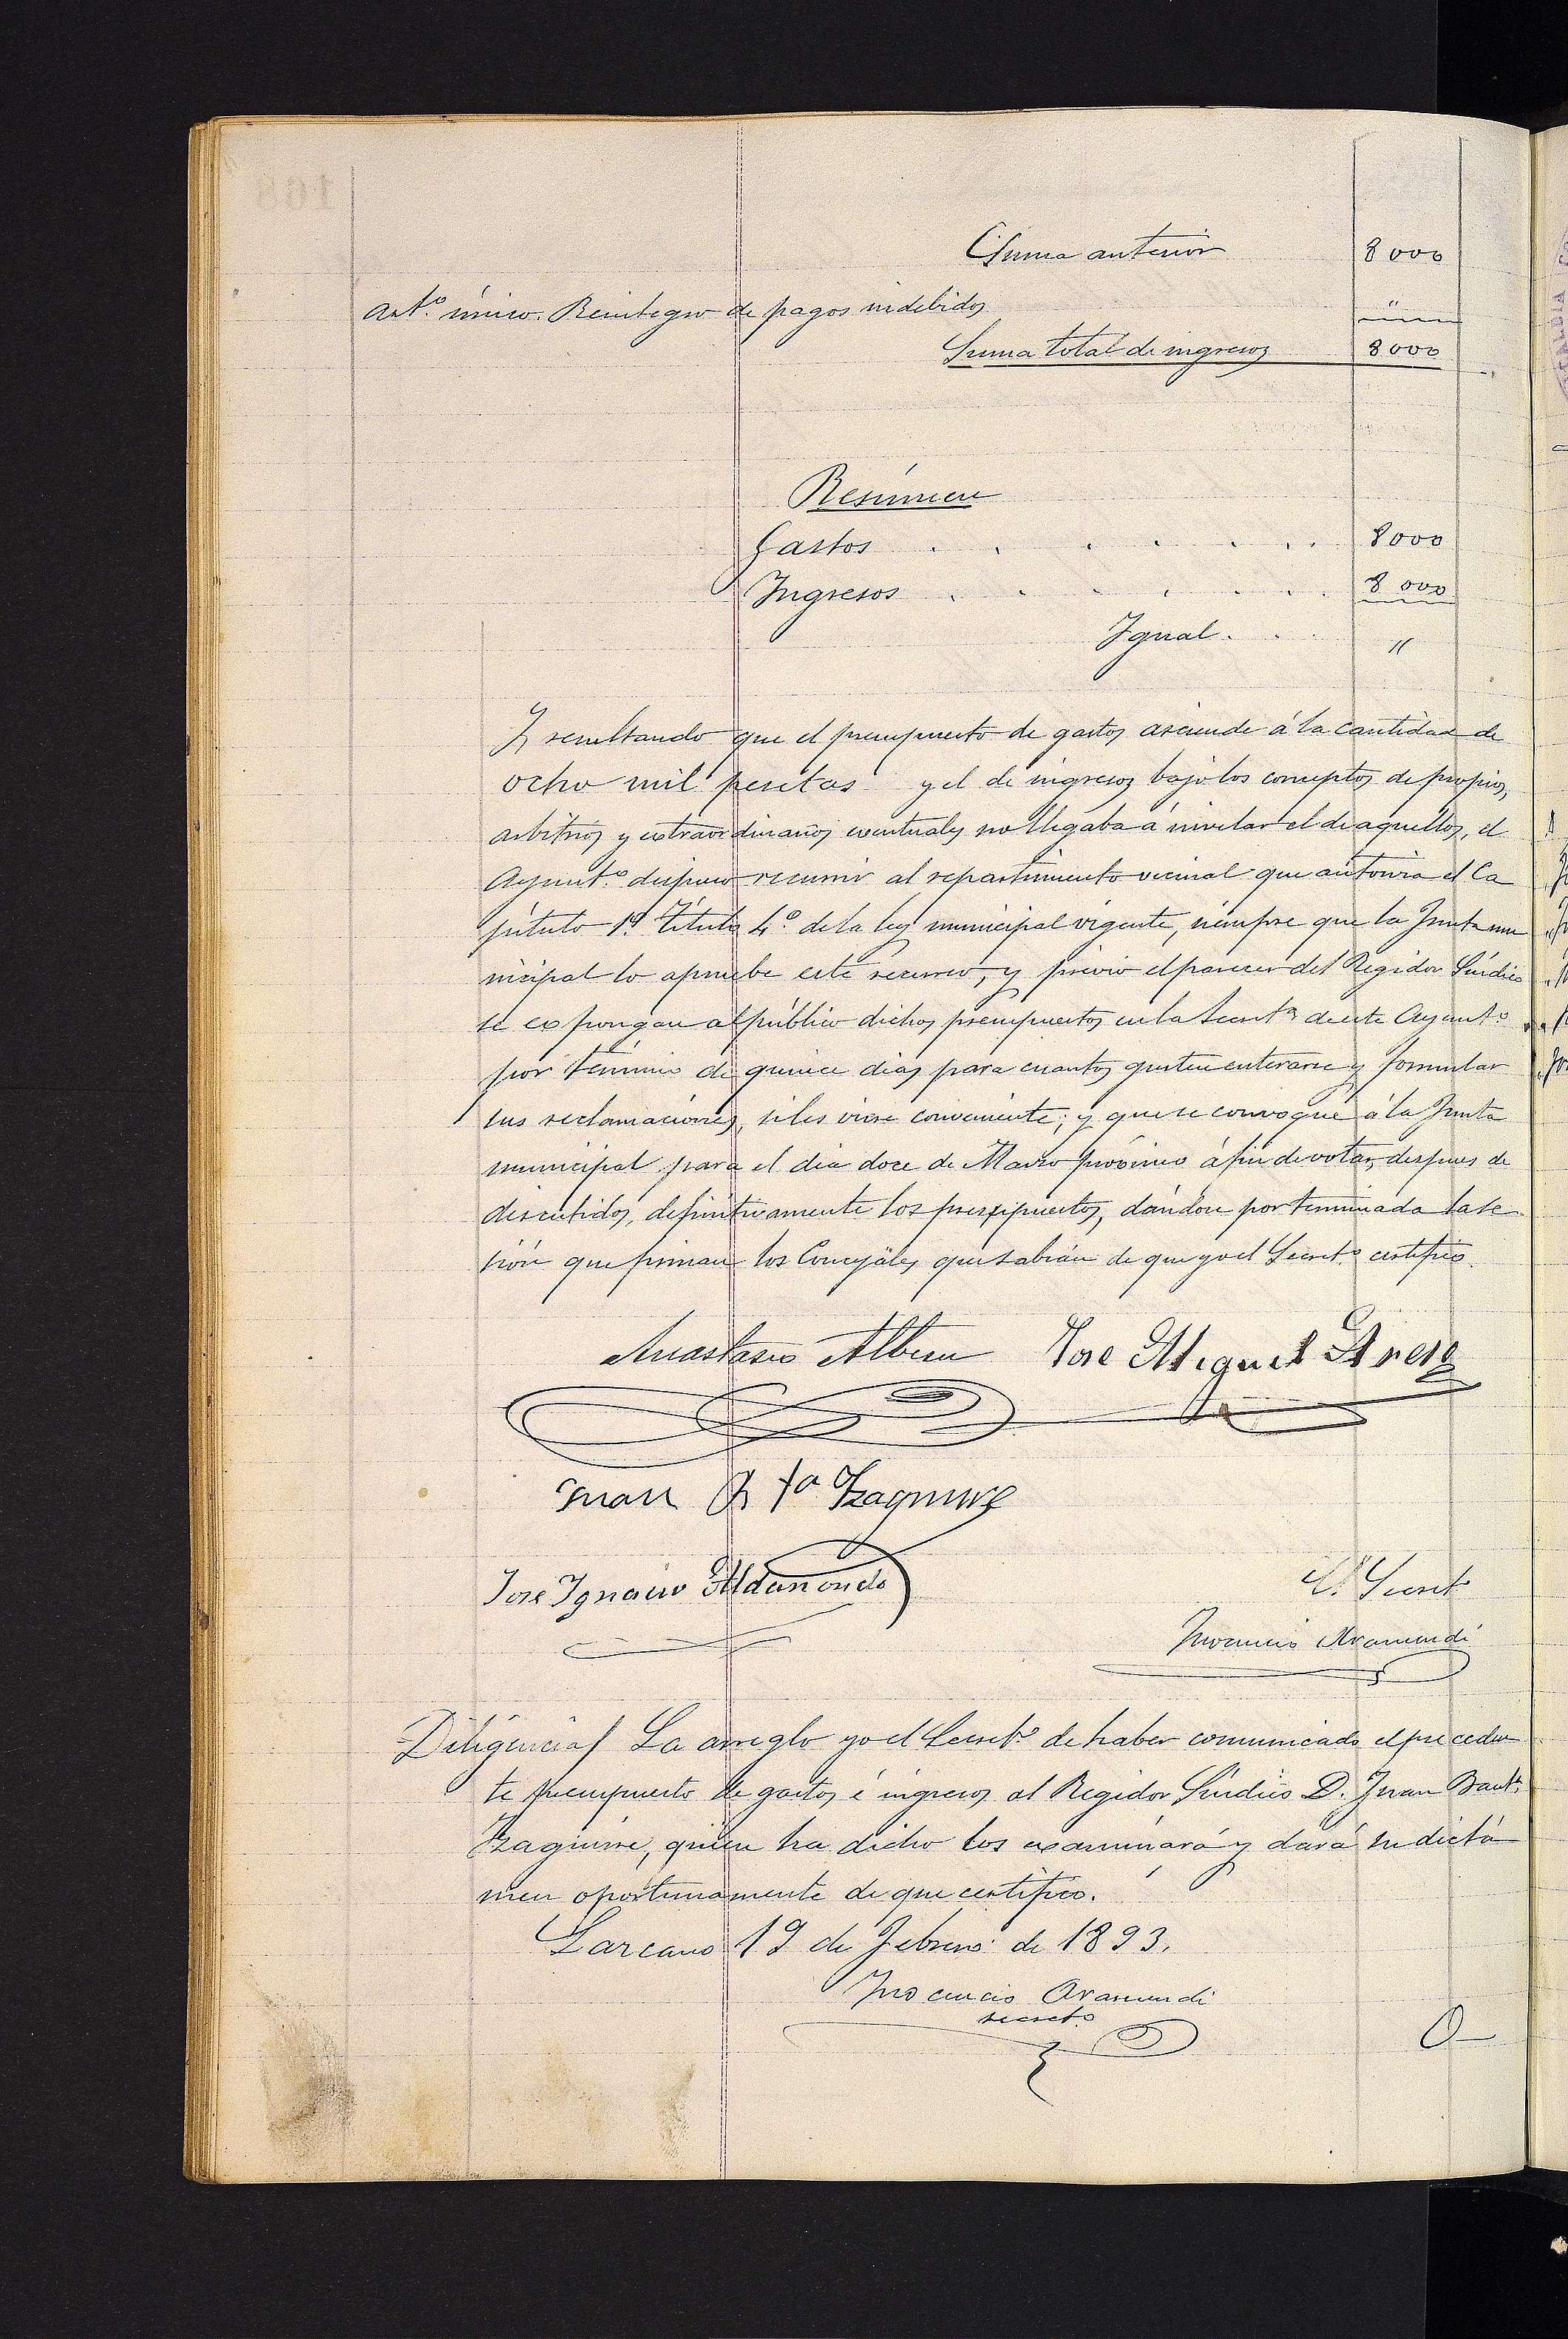 Suma anterior 8000
Art.º único. Reintegro de pagos indebidos "
Suma total de ingresos 8000
Resúmen
Gastos . . . . . . . 8000
Ingresos . . . . . . . 8000
Igual . . . "
Y resultando que el presupuesto de gastos asciende á la cantidad de
ocho mil pesetas y el de ingresos bajo los conceptos de propios,
arbitrios y extraordinarios eventuales no llegaba á nivelar el de aquellos, el
Ayunt.º dispuso recurrir al repartimiento vecinal que autoriza el Ca
pítulo 1º. Título 4.º de la ley municipal vigente, siempre que la Junta mu
nicipal lo apruebe este recurso, y previo el parecer del Regidor Síndico
se expongan al público dichos presupuestos en la Secret.ª de este Ayunt.º
por término de quince dias para cuantos gusten enterarse y formular
sus reclamaciones, si les viere conveniente; y que se convoque á la Junta
municipal para el dia doce de Marzo próximo á fin de votar, despues de
discutidos, definitivamente los presupuestos, dándose por terminada la se
sión que firman los Concejales que sabian de que yo el Secret.º certifico.
Anastasio Albisu Jose Miguel
Juan Bta Izaguirre
Jose Ignacio Aldanondo
El Secret.º
Inocencio Aramendi
Diligencia/ La arreglo yo el Secret.º de haber comunicado el preceden
te presupuesto de gastos é ingresos al Regidor Síndico D. Juan Baut.ª
Izaguirre, quien ha dicho los examinará y dará su dictá
men oportunamente de que certifico.
Lazcano 19 de Febrero de 1893.
Inocencio Aramendi
secret.º